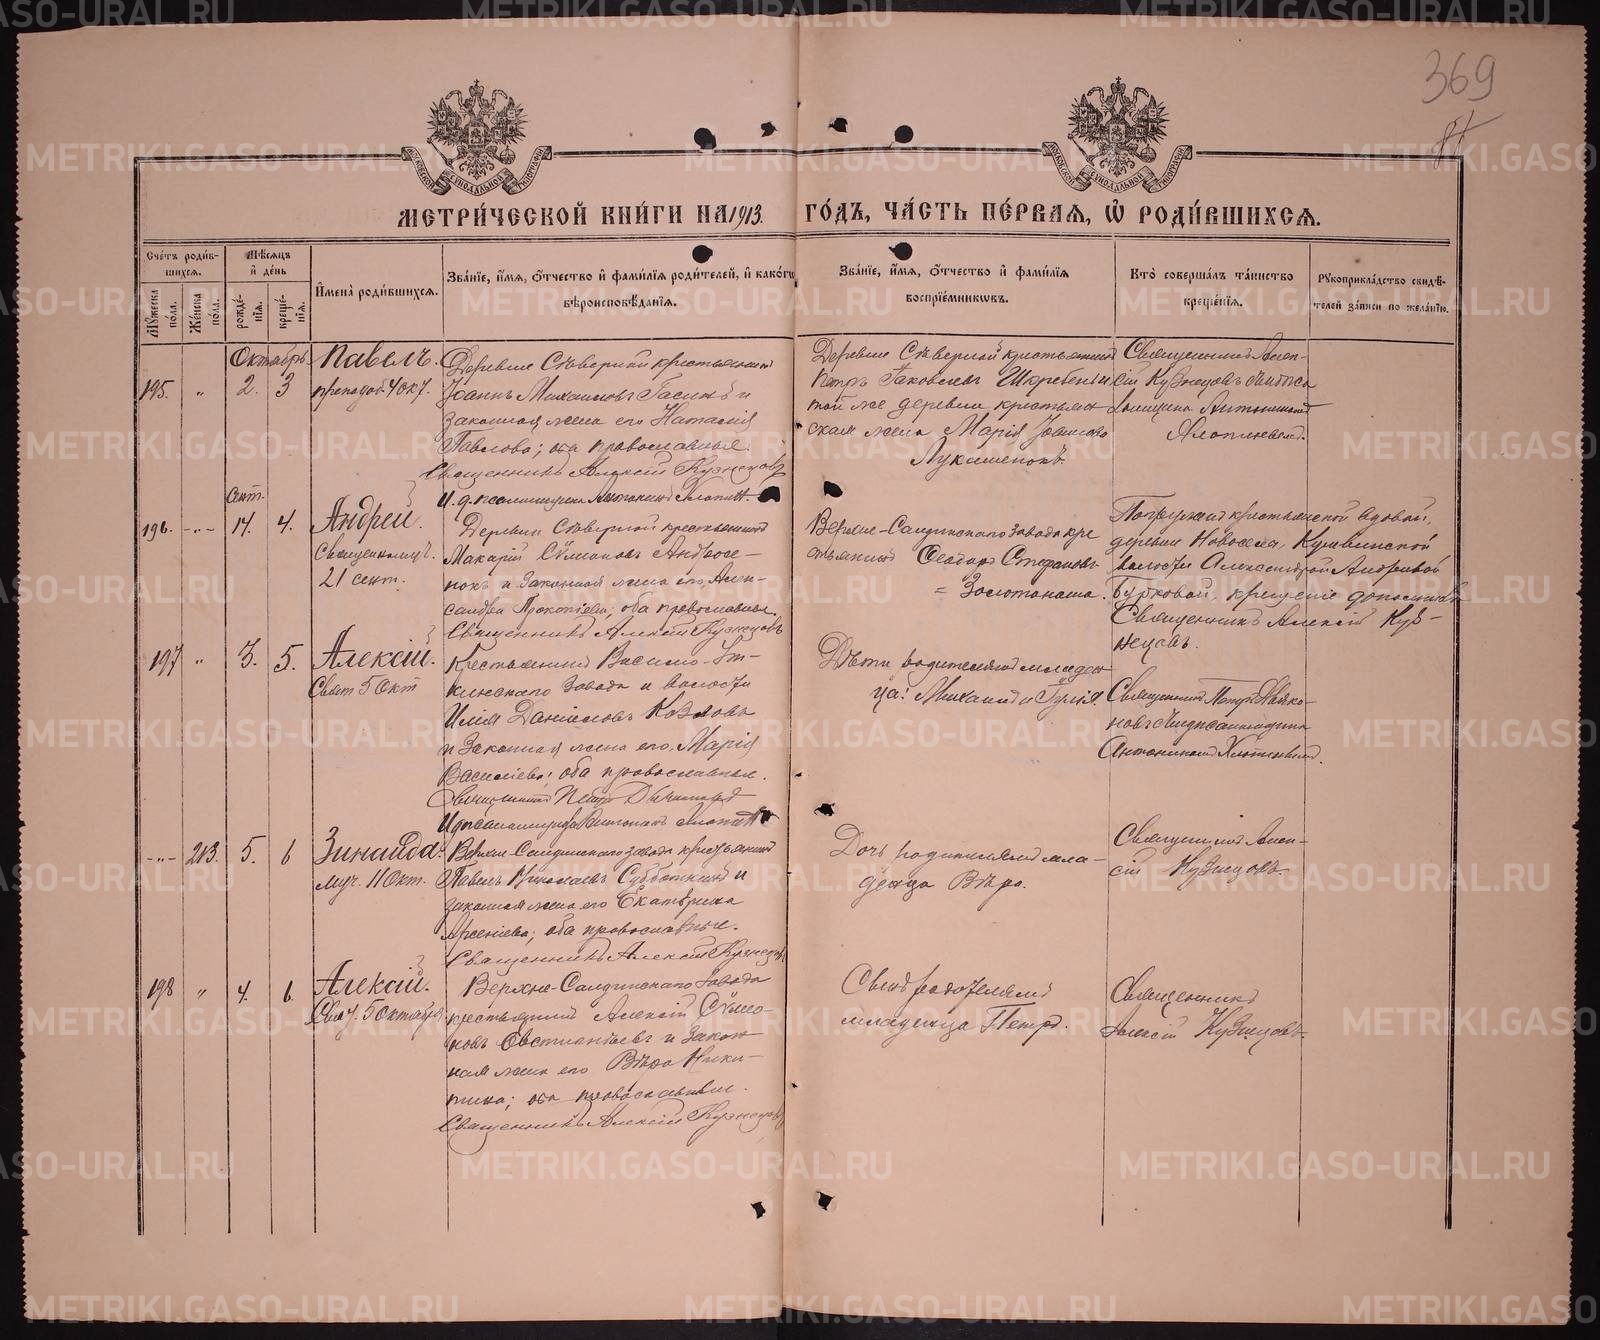 369
МОСКОВСКОЙ СѴНОДАЛЬНОЙ ТИПОГРАФІИ
МОСКОВСКОЙ СѴНОДАЛЬНОЙ ТИПОГРАФІИ
МЕТРИ́ЧЕСКОЙ КНИ́ГИ НА 1913. ГО́ДЪ, ЧА́СТЬ ПЕ́РВАѦ, Ѡ РОДИ́ВШИХСѦ.
Сче́тъ роди́в-
шихся.
Му́жеска по́ла.
Же́нска по́ла.
Мѣ́сяцъ
и҆ де́нь
рожде́-
нїя.
креще́-
нїя.
И҆мена̀ роди́вшихся.
Зва́нїе, и҆́мя, ѻ҆́тчество и҆ фами́лїя роди́телей, и҆ како́гѡ
вѣроисповѣ́данїя.
Зва́нїе, и҆́мя, ѻ҆́тчество и҆ фами́лїя
воспрїе́мникѡвъ.
Кто̀ соверша́лъ та́инство
креще́нїя.
Рꙋкоприкла́дство свидѣ́-
телей за́писи по жела́нїю.
Октябрь
195. " 2. 3
Павелъ.
преподоб. 4 окт.
Деревни Сѣверной крестьянинъ
Іоаннъ Михаиловъ Гасинъ и
законная жена его Наталія
Павлова; оба православные.
Священникъ Алексій Кузнецовъ
И. д. псаломщика Антонинъ
Деревни Сѣверной крестьянинъ
Петръ Яковлевъ и
той же деревни крестьян
ская жена Марія Іоаннова
Лукашенокъ.
Священникъ Алек-
сій Кузнецовъ
Антониномъ
Сент.
196. -"- 14. 4.
Андрей.
Священномуч.
21 сент.
Деревни Сѣверной крестьянинъ
Макарій Сѵмеоновъ Андрос-
нокъ и законная жена его Алек-
сандра Прокопіева; оба православные.
Священникъ Алексій Кузнецовъ
Верхне-Салдинскаго завода кре
стьянинъ Ѳеодоръ Стефановъ
= Золотогана.
Погружалъ крестьянской вдовой,
деревни Новосела, Кушвинской
волости Александрой Андреевой
Бутковой, крещеніе дополнилъ
Священникъ Алексій Куз-
нецовъ.
197 " 3. 5.
Алексій.
Свят. 5 Окт
Крестьянинъ Васильо-Ут-
кинскаго завода и волости
Илія Даніиловъ Козловъ
и законная жена его Марія
Василіева; оба православные.
Священникъ Петръ
Дѣти родителямъ младен
ца: Михаилъ и Юлія.
Священникъ Петръ Дьяко-
новъ
Антониномъ
-"- 213. 5. 6
Зинаида.
муч. 11 Окт.
Верхне-Салдинскаго завода крестьянинъ
Павелъ Николаевъ Субботкинъ и
законная жена его Екатерина
Арсеніева; оба православные.
Священникъ Алексій Кузнецовъ
Дочь родителямъ мла-
денца Вѣра.
Священникъ Алек-
сій Кузнецовъ.
198 " 4. 6.
Алексій.
Свят. 5 Октября
Верхне-Салдинскаго завода
крестьянинъ Алексій Сѵмео-
новъ Евстигнѣевъ и закон
ная жена его Вѣра Ники-
тина; оба православные.
Священникъ Алексій Кузнецовъ
Сынъ родителямъ
младенца Петръ.
Священникъ
Алексій Кузнецовъ.
METRIKI.GASO-URAL.RU